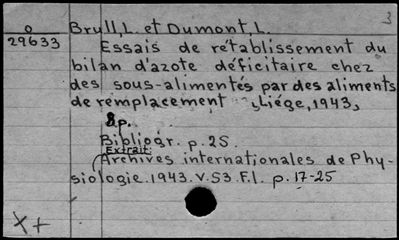 3
o Brull, L. et Dumont, L.
29633 Essais de rétablissement du
bilan d'azote déficitaire chez
des sous-alimentés par des aliments
de remplacement, Liége, 1943,
8p.
Bibliogr. p. 25.
Extrait:
(Archives internationales de Phy-
siologie. 1943. v. 53. F. 1. p. 17-25
X+